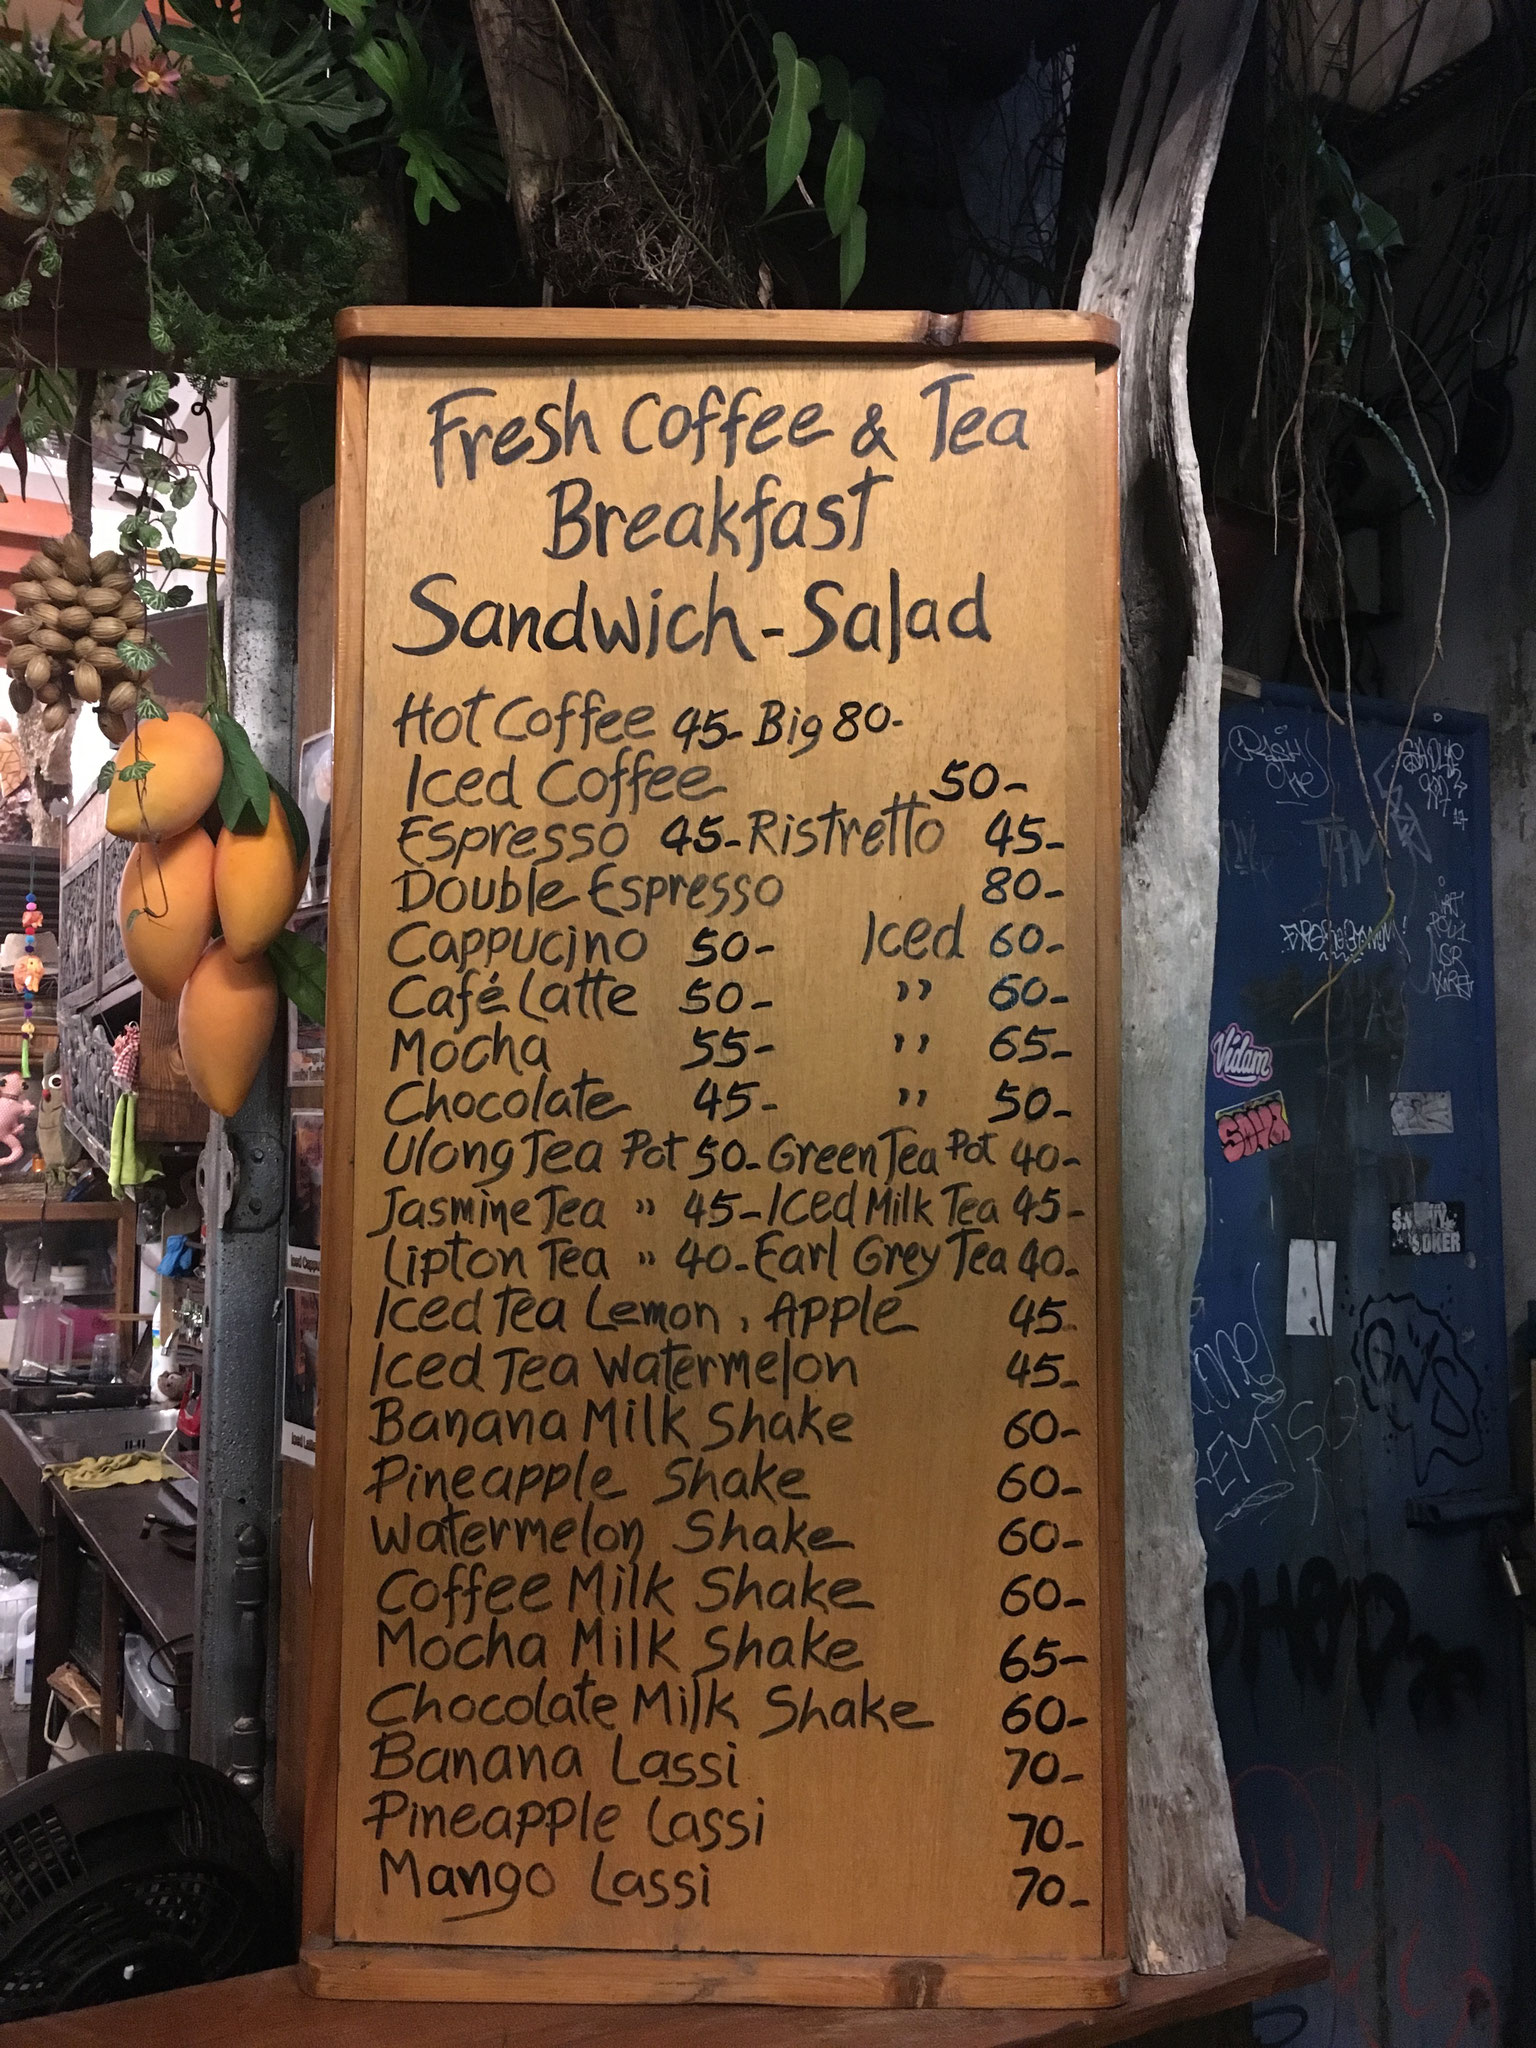 Fresh Coffee & Tea
Breakfast
Sandwich - Salad
Hot Coffee 45- Big 80-
Iced Coffee 50-
Espresso 45- Ristretto 45-
Double Espresso 80-
Cappucino 50- Iced 60-
Café Latte 50- " 60-
Mocha 55- " 65-
Chocolate 45- " 50-
Ulong Tea Pot 50- Green Tea Pot 40-
Jasmine Tea " 45- Iced Milk Tea 45-
Lipton Tea " 40- Earl Grey Tea 40-
Iced Tea Lemon, Apple 45-
Iced Tea Watermelon 45-
Banana Milk Shake 60-
Pineapple Shake 60-
Watermelon Shake 60-
Coffee Milk Shake 60-
Mocha Milk Shake 65-
Chocolate Milk Shake 60-
Banana Lassi 70-
Pineapple Lassi 70-
Mango Lassi 70-
Vidam